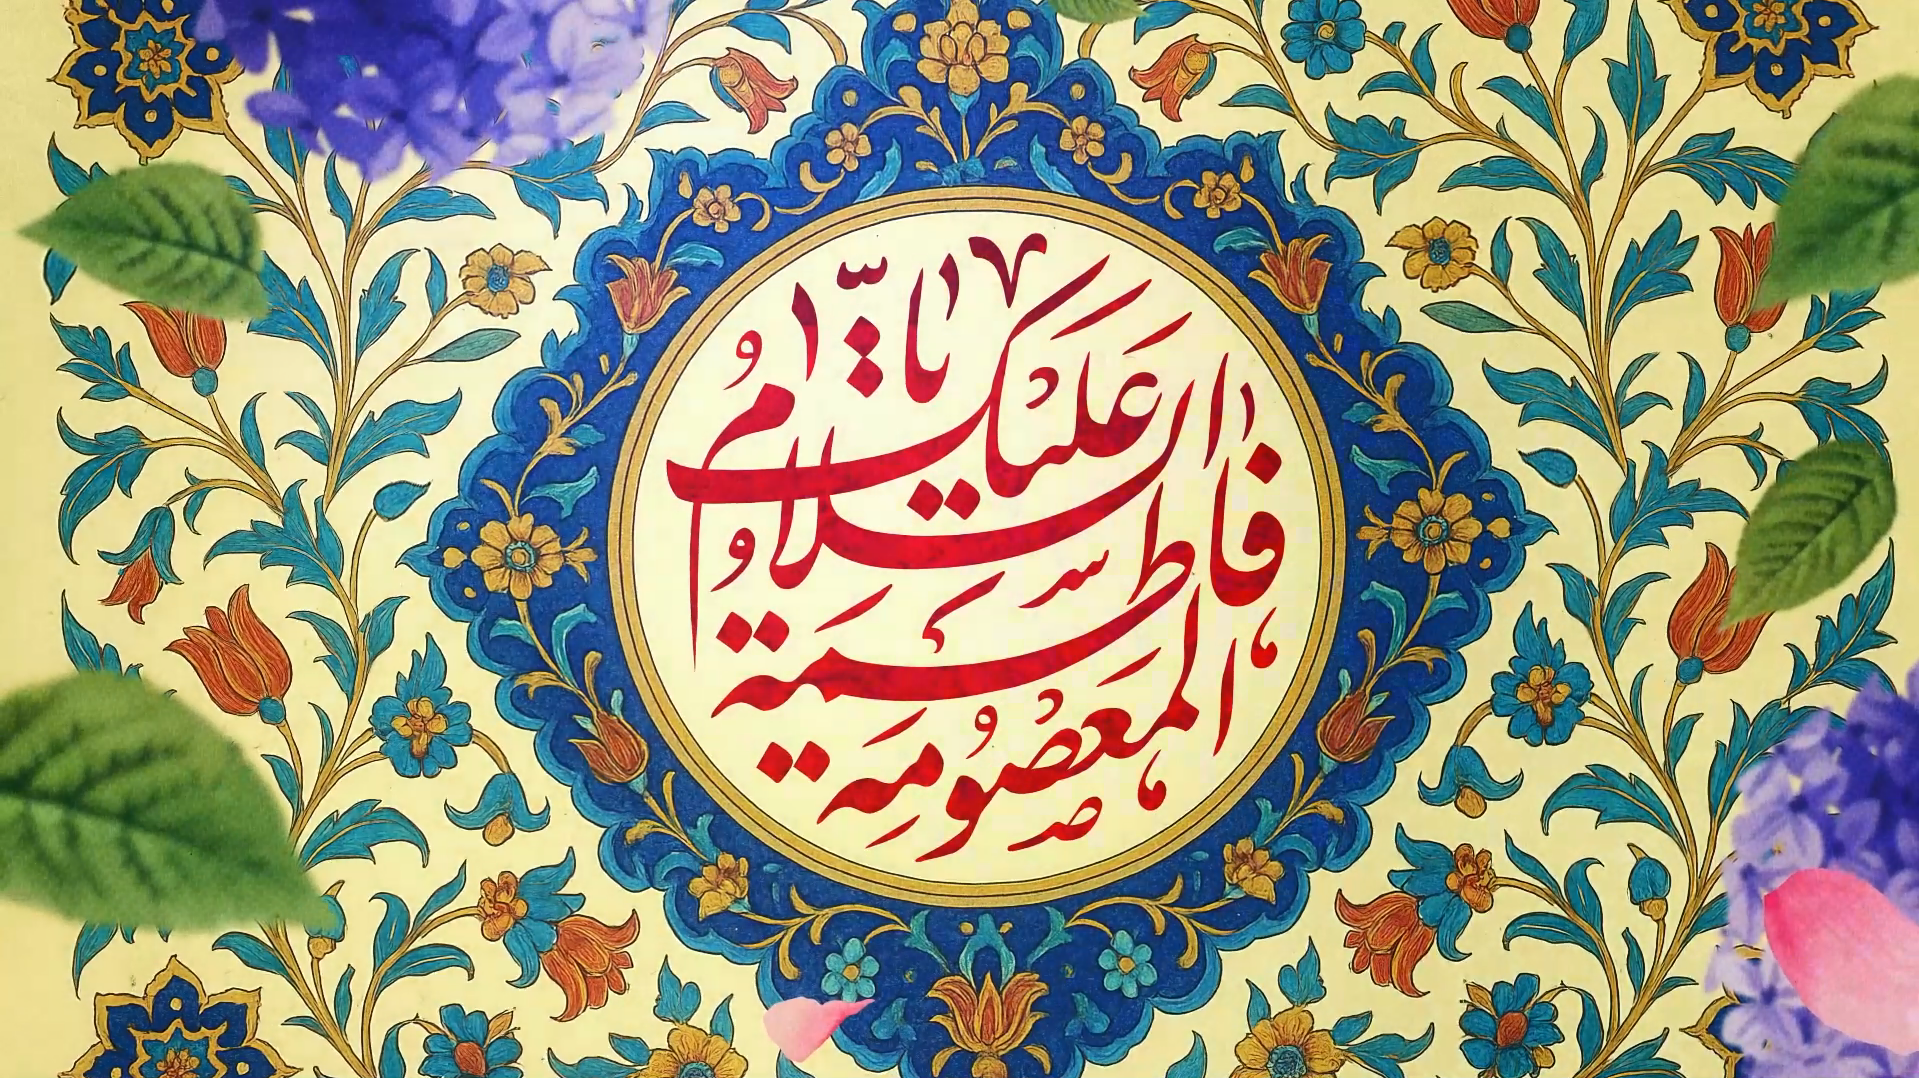 السلام عليك يا
فاطمة
المعصومة